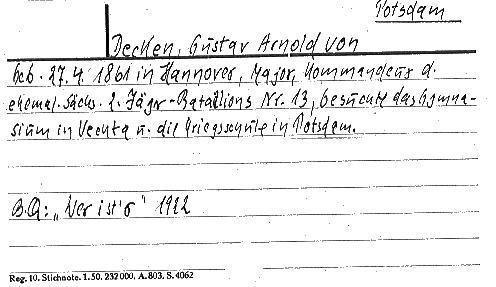 Potsdam
Decken, Gustav Arnold von
Geb. 27.4.1861 in Hannover, Major, Kommandeur d.
ehemal. Sächs. 2. Jäger-Bataillons Nr. 13, besuchte das Gymna-
sium in Vechta u. die Kriegsschule in Potsdam.
B.Q.: „Wer ist's" 1922
Reg. 10. Stichnote. 1. 50. 232000. A. 803. S. 4062